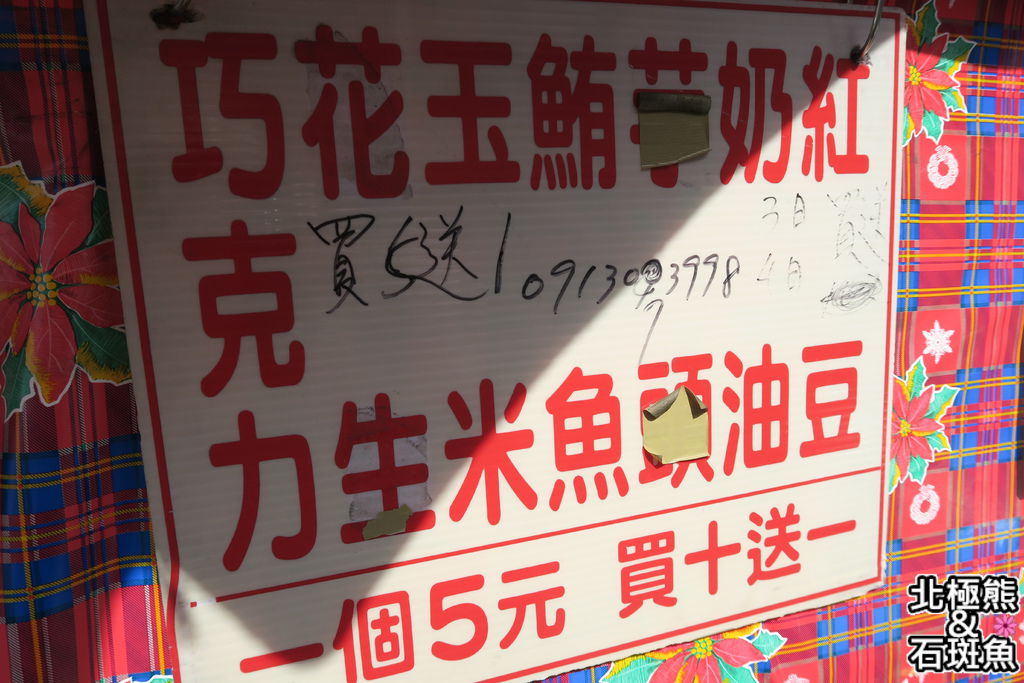 巧花玉鮪芋奶紅
克
力生米魚頭油豆
買5送1
3日
4日
一個5元 買十送一
北極熊
&
石斑魚